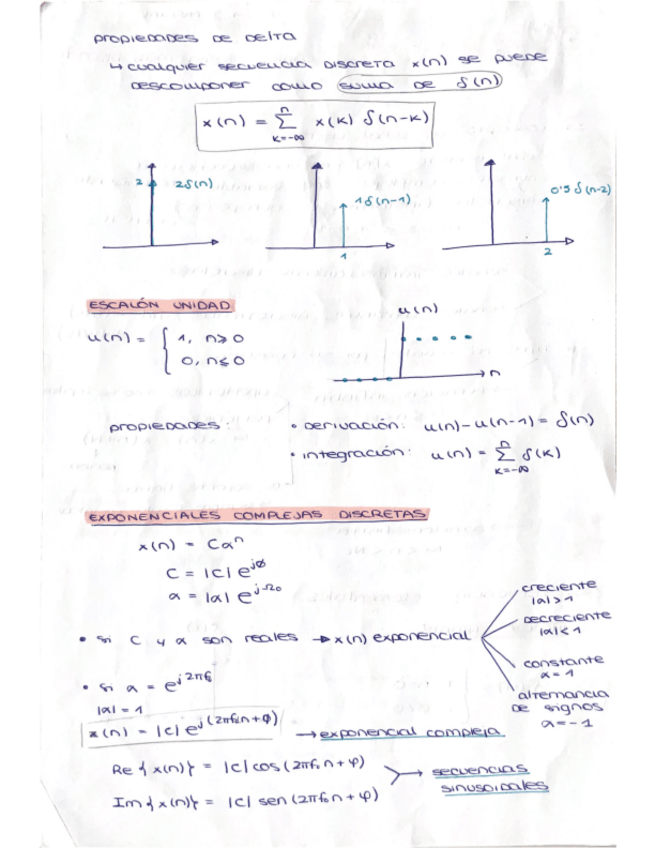 PROPIEDADES DE DELTA
↳ CUALQUIER SECUENCIA DISCRETA x(n) SE PUEDE
DESCOMPONER COMO SUMA DE δ(n)
x(n) = Σ_{k=-∞}^{n} x(k) δ(n-k)
2 2δ(n)
1δ(n-1)
1
0'5 δ(n-2)
2
ESCALÓN UNIDAD
u(n) = { 1, n≥0
0, n≤0
u(n)
n
PROPIEDADES:
• DERIVACIÓN: u(n) - u(n-1) = δ(n)
• INTEGRACIÓN: u(n) = Σ_{k=-∞}^{n} δ(k)
EXPONENCIALES COMPLEJAS DISCRETAS
x(n) = Cα^n
C = |C| e^{jø}
α = |α| e^{jΩo}
• SI C y α SON REALES → x(n) EXPONENCIAL
CRECIENTE
|α|>1
DECRECIENTE
|α|<1
CONSTANTE
α=1
ALTERNANCIA
DE SIGNOS
α=-1
• SI α = e^{j2πf₀}
|α| = 1
x(n) = |C| e^{j(2πf₀n+φ)} → EXPONENCIAL COMPLEJA
Re{x(n)} = |C| cos(2πf₀n + φ)
Im{x(n)} = |C| sen(2πf₀n + φ)
→ SECUENCIAS
SINUSOIDALES